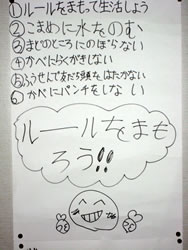 ①ルールをまもって生活しよう
②こまめに水をのむ
③まどのところにのぼらない
④かべにらくがきしない
⑤ふうせんで友だちの頭をはたかない
⑥かべにパンチをしない
ルールをまも
ろう!!